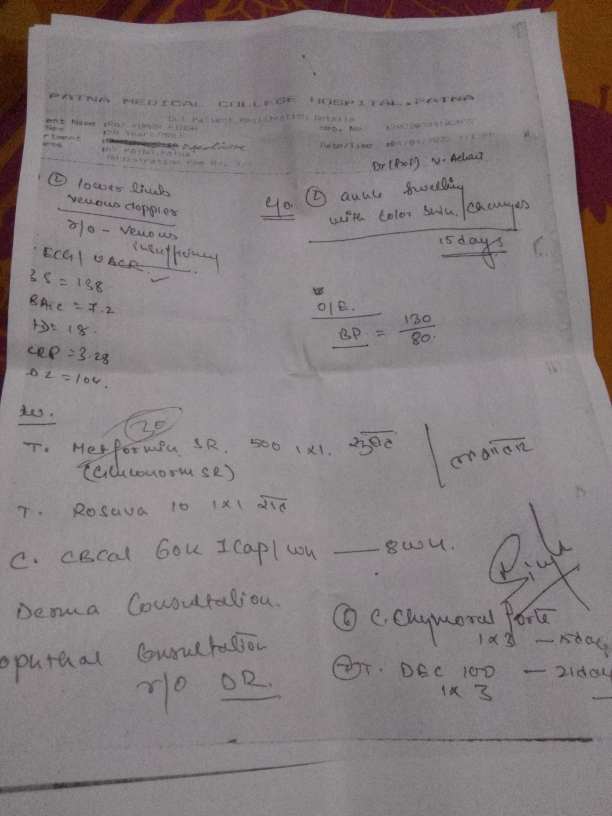 PATNA MEDICAL COLLEGE HOSPITAL, PATNA
Out Patient Registration Details
ent Name :RAJ KUMAR SINGH
Reg. No
:58 Years/MALE
rtment
Medicine
Date/Time
Registration Fee Rs.
Dr (Prof) V.
(L) lower limb
venous doppler
r/o - venous
insufficiency
ECG / UACR ✓
BS = 138.
BA1c = 7.2
TD = 18.
CRP = 3.28
D2 = 104.
c/o (L) ankle swelling
with color skin changes
15 days
O/E.
BP = 130/80
20
T. Metformin SR. 500 1x1.
(Gluconorm SR)
T. Rosuva 10 1x1 रात
C. CBCal 60k 1cap/wk — 8wk.
Derma Consultation.
ophthal Consultation
r/o DR.
(6) C. Chymoral forte
1x3 — 15days
(7) T. DEC 100 — 21day
1x3